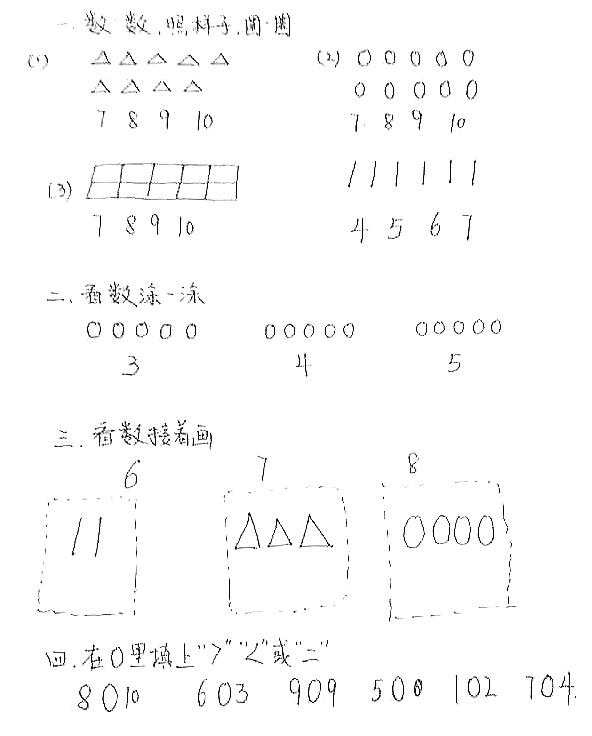 一.数一数.照样子.圈一圈
(1) △ △ △ △ △ (2) ○ ○ ○ ○ ○
△ △ △ △ ○ ○ ○ ○ ○
7 8 9 10 7 8 9 10
(3)
7 8 9 10 4 5 6 7
二、看数涂一涂
○○○○○ ○○○○○ ○○○○○
3 4 5
三.看数接着画
6 7 8
△△△ ○○○○
四.在○里填上">""<"或"="
8○10 6○3 9○9 5○0 1○2 7○4